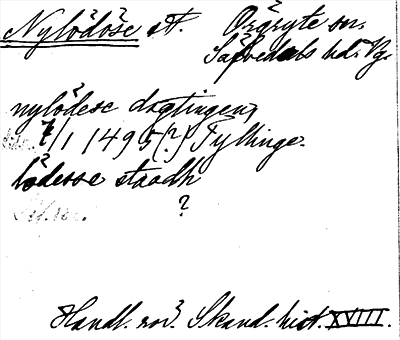 Nylödöse st. Örgryte sn.
Säfvedals hd. Vg.
nylödesc dagtingen,
7/1 1495(?) Tyllinge.
lödesse staadh
?
Handl. rör. Skand. hist. XVIII.